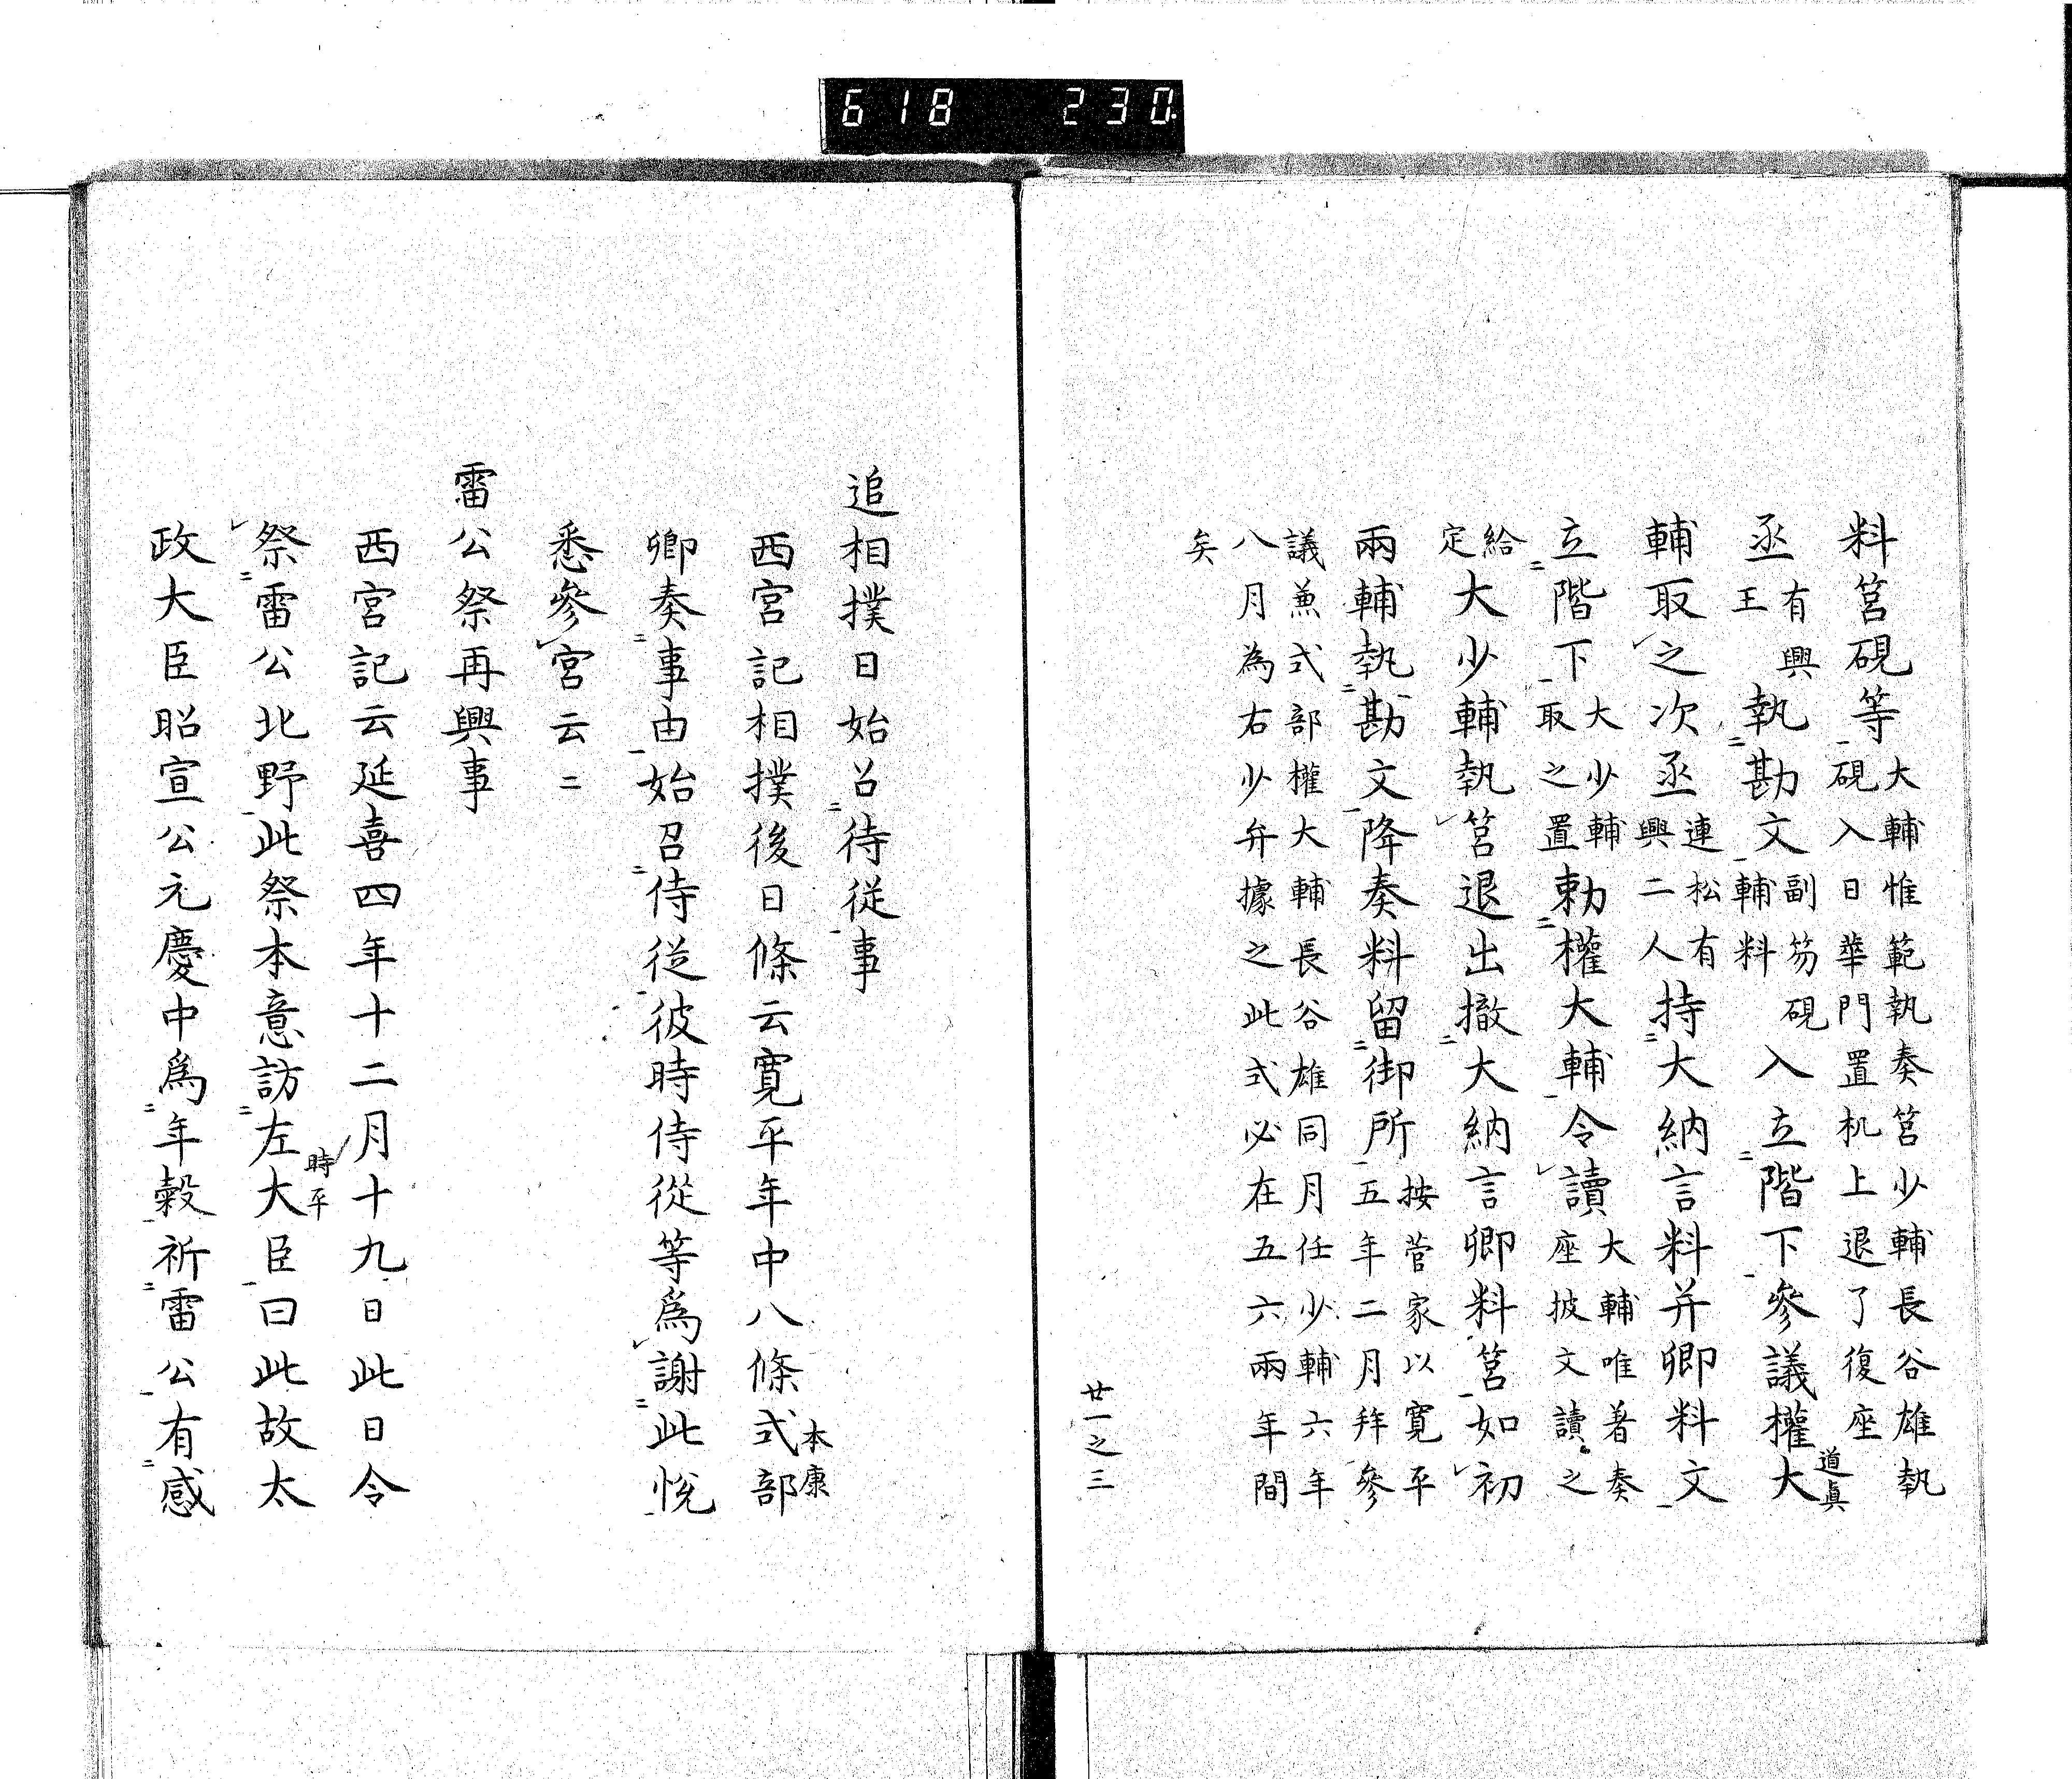 618 230
料筥硯等大輔惟範執奏筥少輔長谷雄執硯入日華門置机上退了復座
丞有興王執勘文副笏硯輔料入立階下參議權大道眞
輔取之次丞連松有興二人持大納言料并卿料文
立階下大少輔取之置勅權大輔令讀大輔唯著奏座披文讀之
給定大少輔執筥退出撤大納言卿料筥如初
兩輔執勘文降奏料留御所按菅家以寛平五年二月拜參
議兼式部權大輔長谷雄同月任少輔六年
八月為右少弁據之此式必在五六兩年間
矣
廿一之三
追相撲日始召待從事
西宮記相撲後日條云寛平年中八條式部本康
卿奏事由始召侍從彼時侍從等爲謝此悅
悉參宮云〻
雷公祭再興事
西宮記云延喜四年十二月十九日此日令
祭雷公北野此祭本意訪左大臣時平曰此故太
政大臣昭宣公元慶中爲年穀祈雷公有感